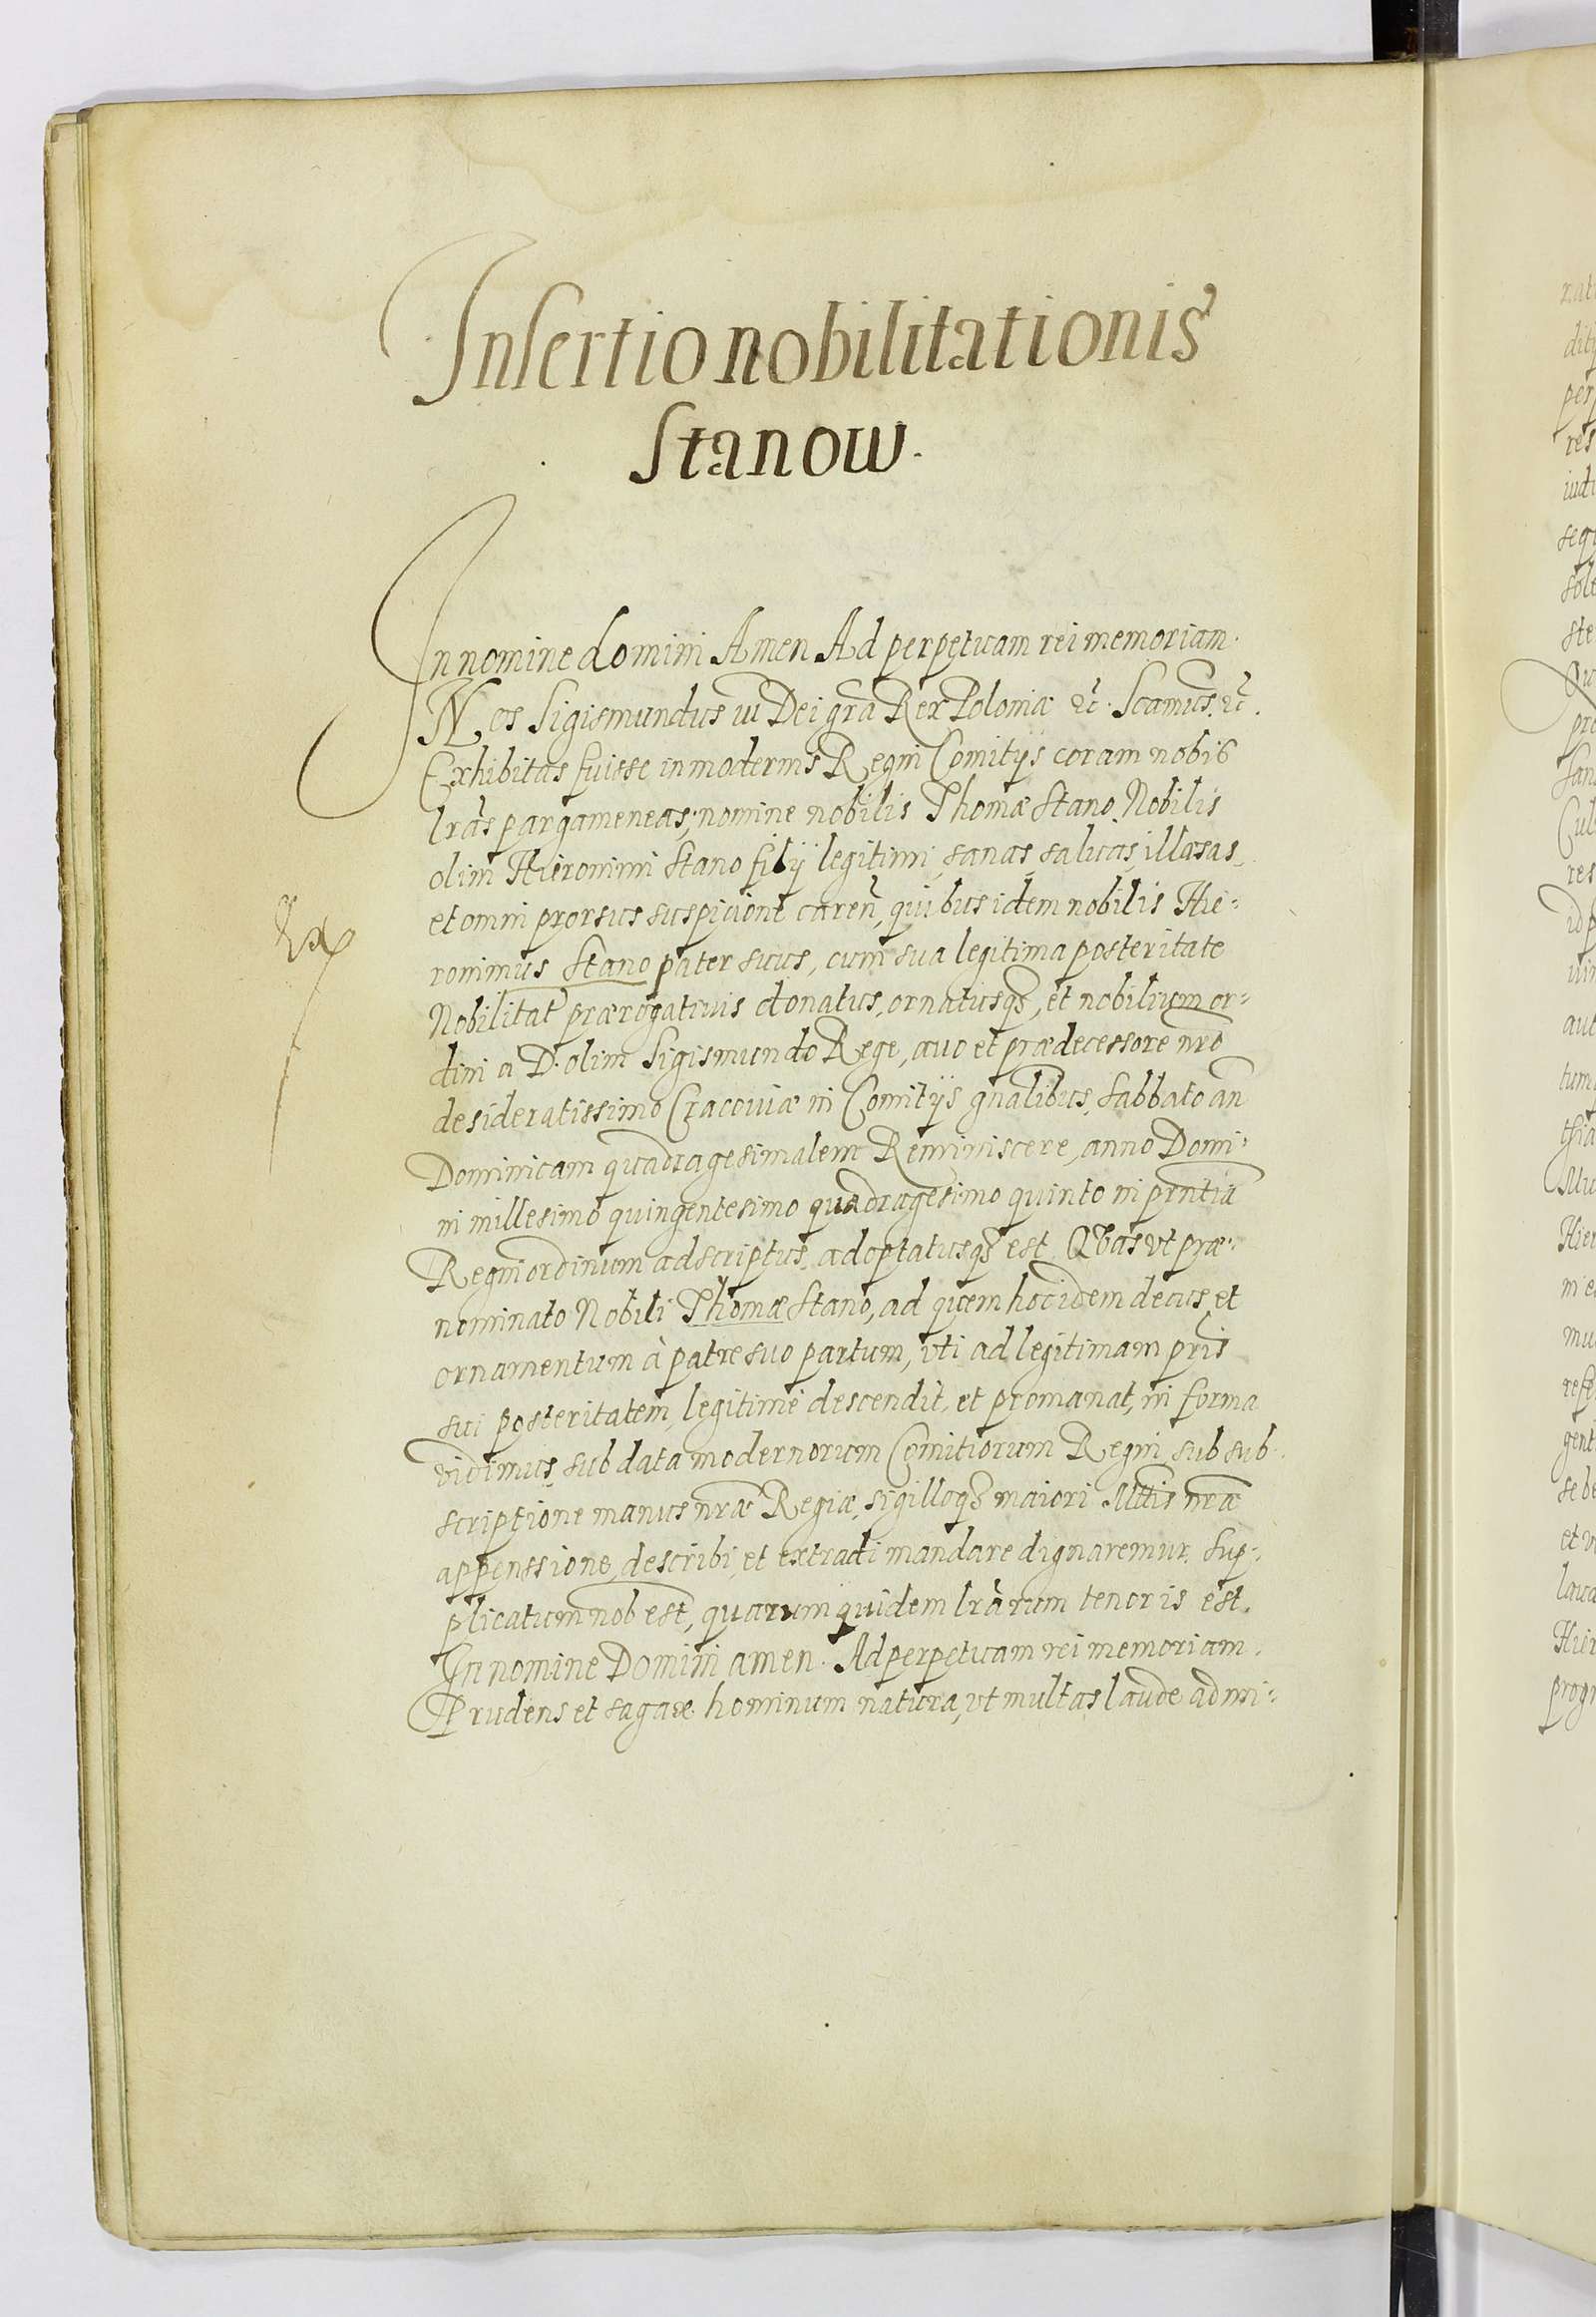 Insertio nobilitationis
Stanow.
In nomine domini Amen Ad perpetuam rei memoriam.
Nos Sigismundus iii Dei gra Rex Poloniæ etc. Scamus etc.
Exhibitas fuisse in modernis Regni Comitijs coram nobis
lras pargameneas, nomine nobilis Thomæ Stano Nobilis
olim Hieronimi Stano filij legitimi, sanas, saluas, illæsas
et omni prorsus suspicione caren, quibus idem nobilis Hie-
ronimus Stano pater suus, cum sua legitima posteritate
Nobilitat prærogatiuis donatus, ornatusq3, et nobilium or-
dini a D. olim Sigismundo Rege, auo et prædecessore nro
desideratissimo Cracouiæ in Comitijs gnalibus, Sabbato an
Dominicam quadragesimalem Reminiscere, anno Domi-
ni millesimo quingentesimo quadragesimo quinto in prntia
Regni ordinum adscriptus, adoptatusq3 est Qbas vt præ-
nominato Nobili Thomæ Stano, ad quem hoc idem decus, et
ornamentum à patre suo partum, vti ad legitimam pris
sui posteritatem, legitime descendit, et promanat, in forma
vidimus, sub data modernorum Comitiorum Regni, sub sub-
scriptione manus nræ Regiæ, sigilloq3 maiori Mttis nræ
appenssione, describi, et extradi mandare dignaremur, sup-
plicatum nob est, quarum quidem lrarum tenor is est.
In nomine Domini amen. Ad perpetuam rei memoriam.
Prudens et sagax hominum natura, vt multas laude admi-